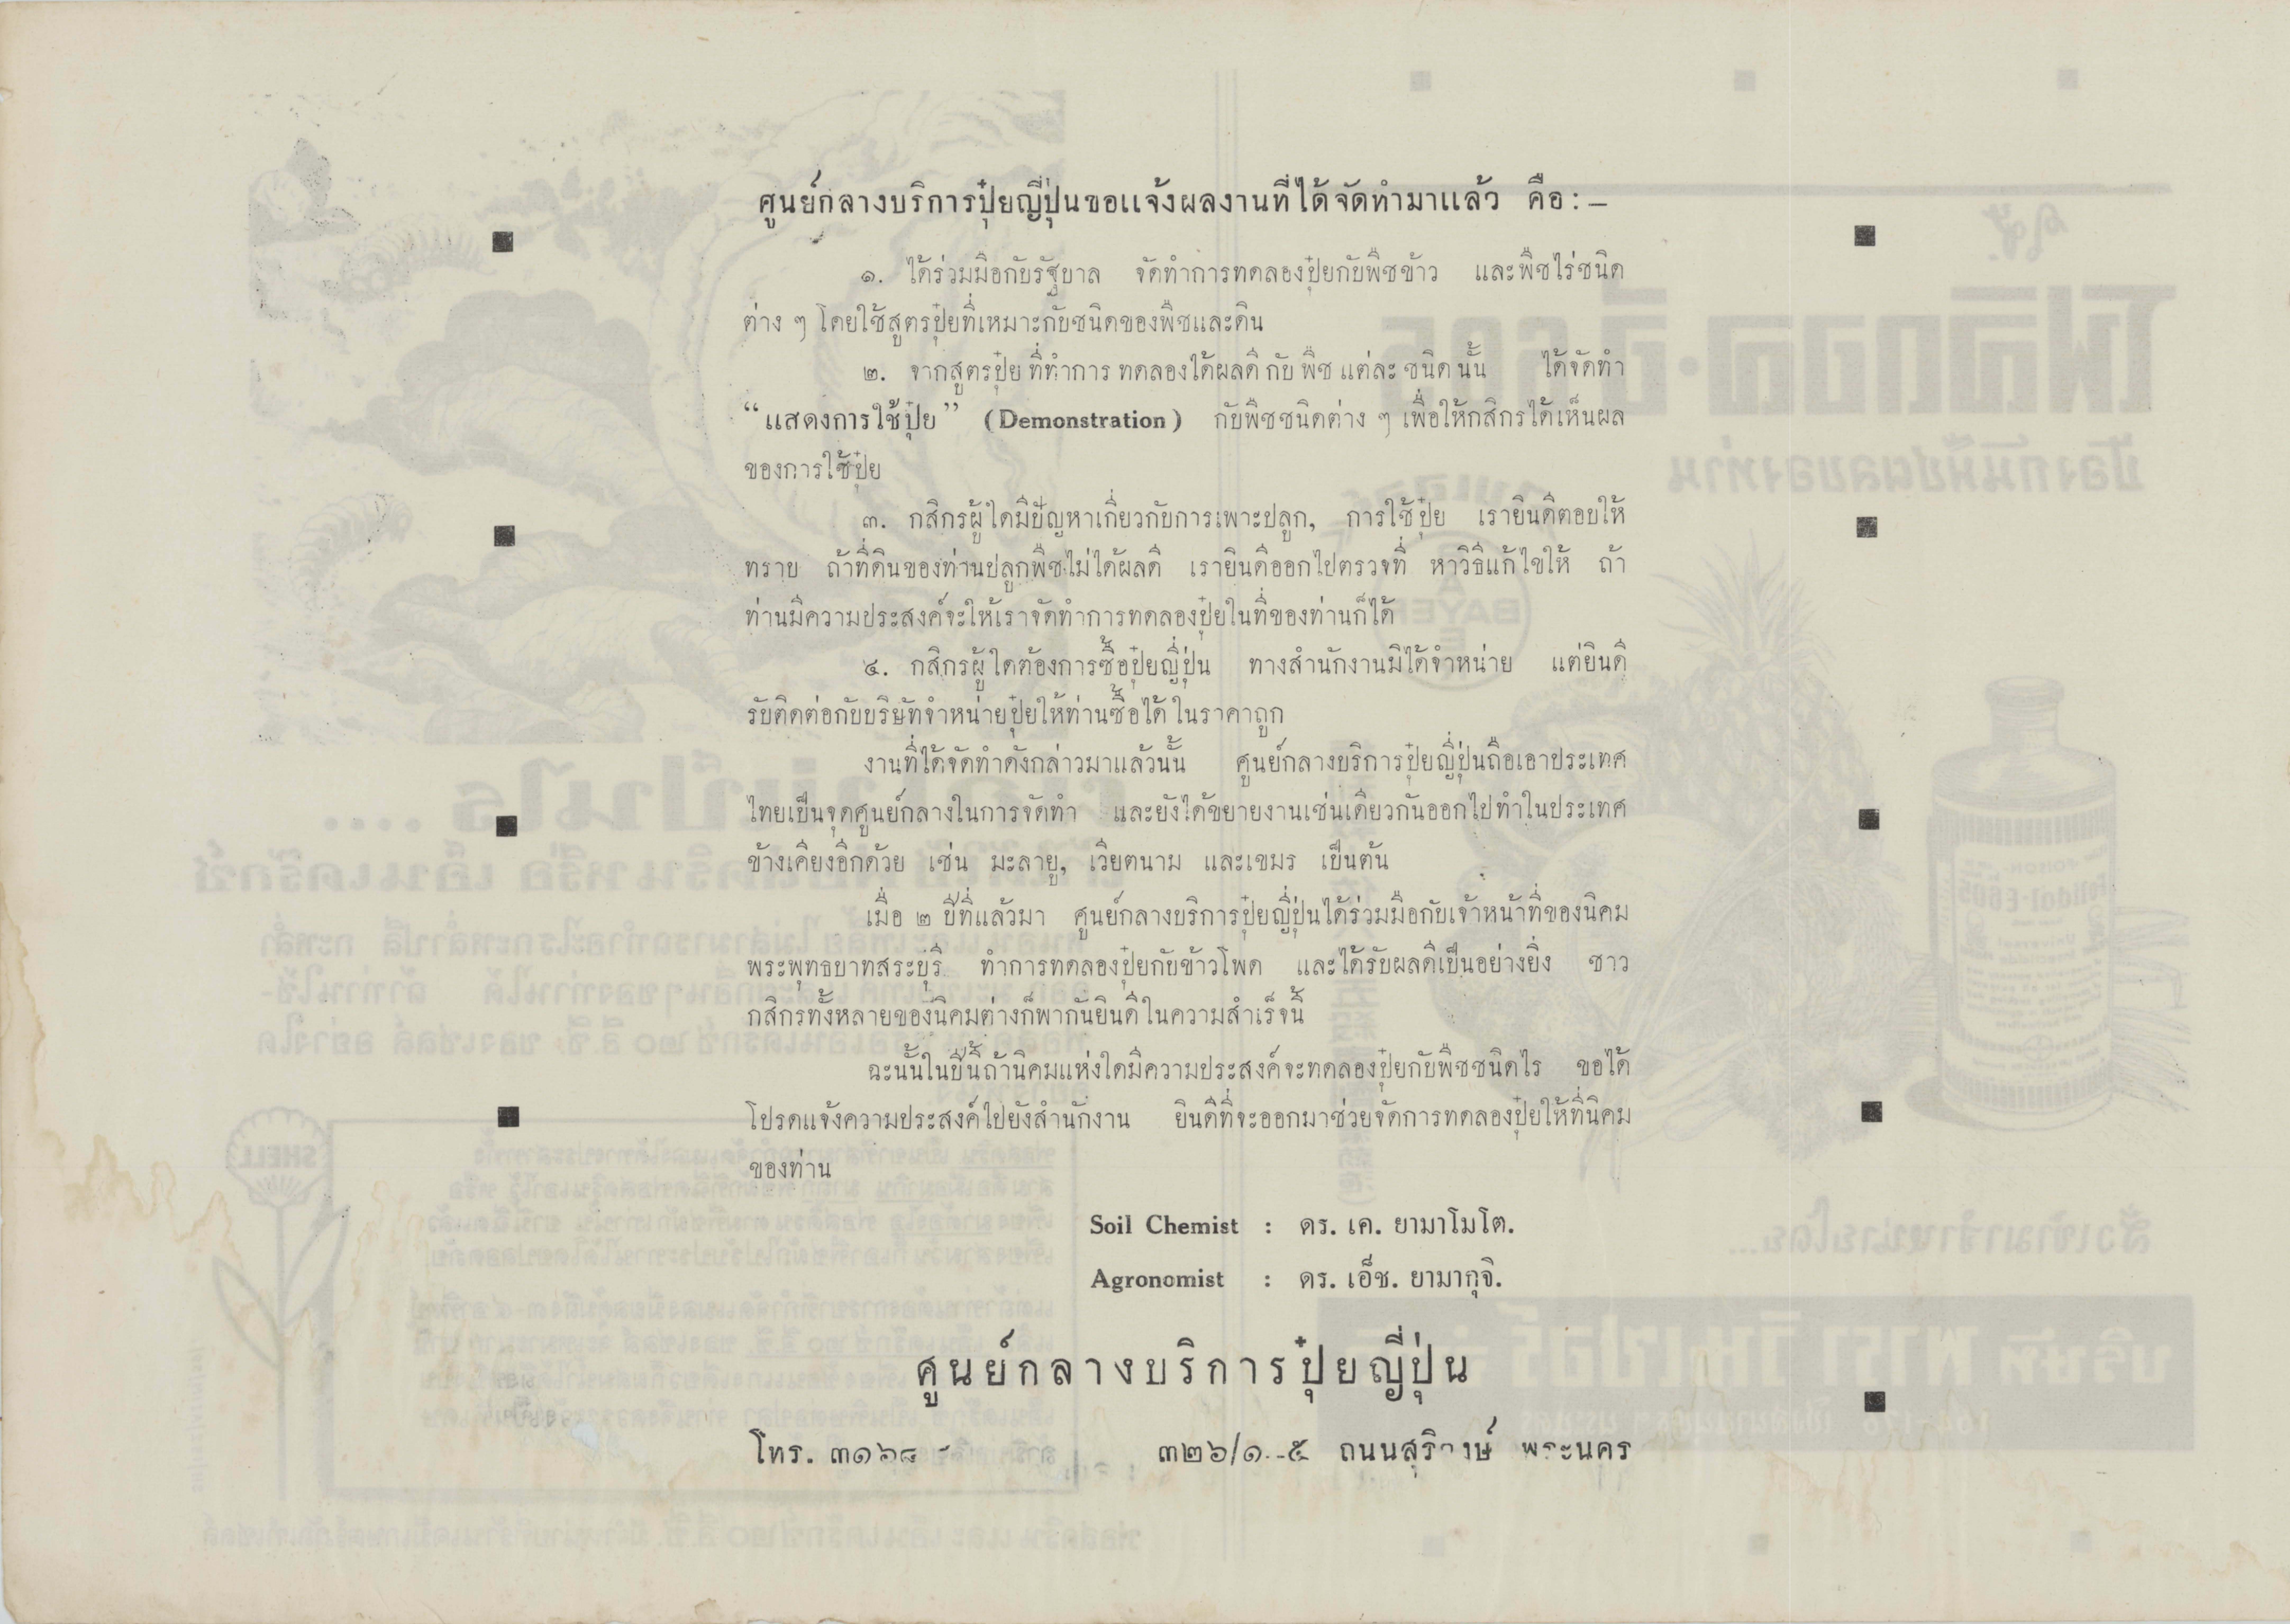 ศูนย์กลางบริการปุ๋ยญี่ปุ่นขอแจ้งผลงานที่ได้จัดทำมาแล้ว คือ : –
๑. ได้ร่วมมือกับรัฐบาล จัดทำการทดลองปุ๋ยกับพืชข้าว และพืชไร่ชนิด
ต่าง ๆ โดยใช้สูตรปุ๋ยที่เหมาะกับชนิดของพืชและดิน
๒. จากสูตรปุ๋ย ที่ทำการ ทดลองได้ผลดี กับ พืช แต่ละ ชนิด นั้น ได้จัดทำ
“แสดงการใช้ปุ๋ย” (Demonstration) กับพืชชนิดต่าง ๆ เพื่อให้กสิกรได้เห็นผล
ของการใช้ปุ๋ย
๓. กสิกรผู้ใดมีปัญหาเกี่ยวกับการเพาะปลูก, การใช้ปุ๋ย เรายินดีตอบให้
ทราบ ถ้าที่ดินของท่านปลูกพืชไม่ได้ผลดี เรายินดีออกไปตรวจที่ หาวิธีแก้ไขให้ ถ้า
ท่านมีความประสงค์จะให้เราจัดทำการทดลองปุ๋ยในที่ของท่านก็ได้
๔. กสิกรผู้ใดต้องการซื้อปุ๋ยญี่ปุ่น ทางสำนักงานมิได้จำหน่าย แต่ยินดี
รับติดต่อกับบริษัทจำหน่ายปุ๋ยให้ท่านซื้อได้ในราคาถูก
งานที่ได้จัดทำดังกล่าวมาแล้วนั้น ศูนย์กลางบริการปุ๋ยญี่ปุ่นถือเอาประเทศ
ไทยเป็นจุดศูนย์กลางในการจัดทำ และยังได้ขยายงานเช่นเดียวกันออกไปทำในประเทศ
ข้างเคียงอีกด้วย เช่น มะลายู, เวียตนาม และเขมร เป็นต้น
เมื่อ ๒ ปีที่แล้วมา ศูนย์กลางบริการปุ๋ยญี่ปุ่นได้ร่วมมือกับเจ้าหน้าที่ของนิคม
พระพุทธบาทสระบุรี ทำการทดลองปุ๋ยกับข้าวโพด และได้รับผลดีเป็นอย่างยิ่ง ชาว
กสิกรทั้งหลายของนิคมต่างก็พากันยินดีในความสำเร็จนี้
ฉะนั้นในปีนี้ถ้านิคมแห่งใดมีความประสงค์จะทดลองปุ๋ยกับพืชชนิดไร ขอได้
โปรดแจ้งความประสงค์ไปยังสำนักงาน ยินดีที่จะออกมาช่วยจัดการทดลองปุ๋ยให้ที่นิคม
ของท่าน
Soil Chemist : ดร. เค. ยามาโมโต.
Agronomist : ดร. เอ็ช. ยามากุจิ.
ศูนย์กลางบริการปุ๋ยญี่ปุ่น
โทร. ๓๑๖๘ ๓๒๖/๑-๕ ถนนสุริวงษ์ พระนคร